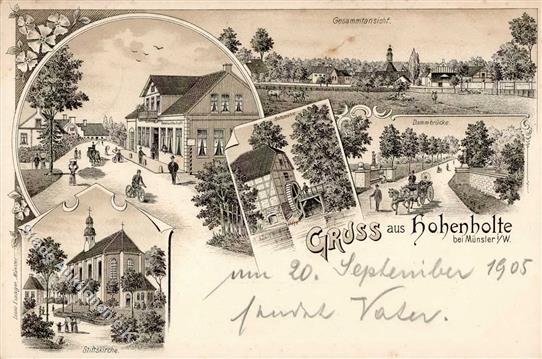 Gesammtansicht.
Dammbrücke.
Gruss aus Hohenholte
bei Münster i/W.
um 20. September 1905
sendet Vater.
Stiftskirche.